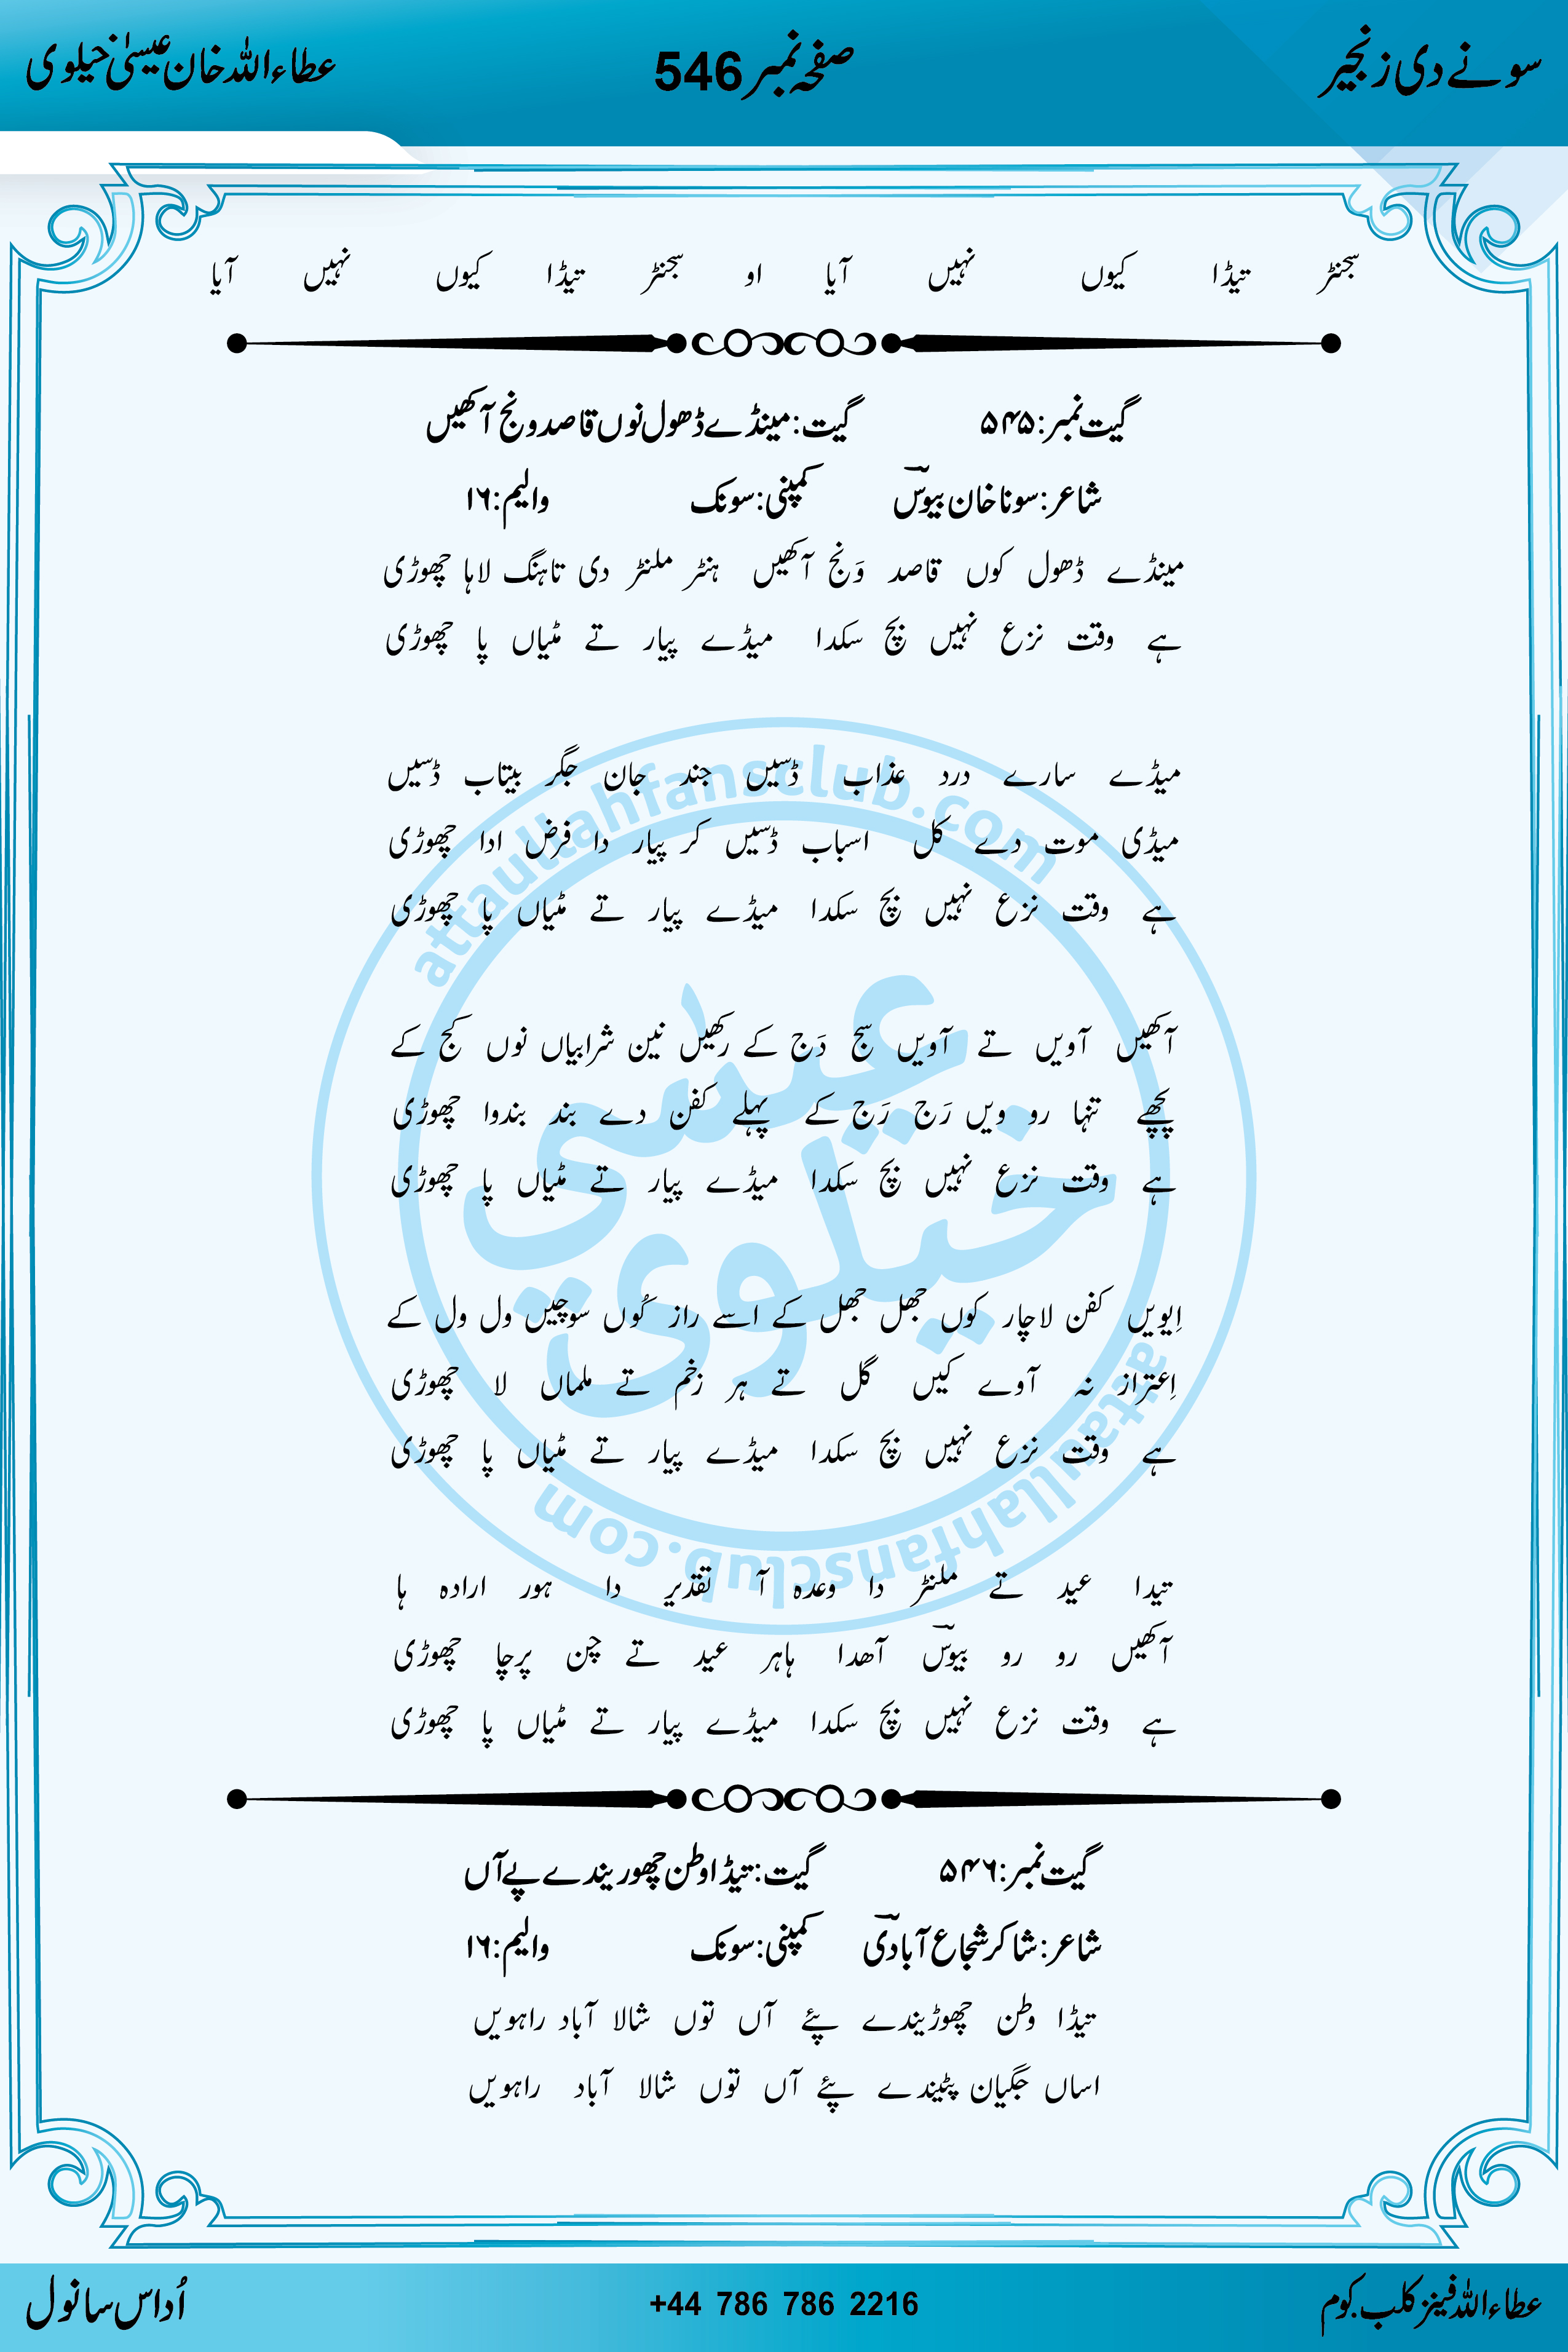 سونے دی زنجیر صفحہ نمبر 546 عطاءاللہ خان عیسیٰ خیلوی
سجنڑ تیڈا کیوں نہیں آیا او سجنڑ تیڈا کیوں نہیں آیا
گیت نمبر: ۵۴۵ گیت: مینڈے ڈھول نوں قاصد ونج آکھیں
شاعر: سونا خان بیوسؔ کمپنی: سونک والیم: ۱۶
مینڈے ڈھول کوں قاصد وَنج آکھیں ہنٹر ملنڑ دی تاہنگ لاہا چھوڑی
ہے وقت نزع نہیں بچ سکدا میڈے پیار تے مٹیاں پا چھوڑی
میڈے سارے درد عذاب ڈسیں جند جان جگر بیتاب ڈسیں
میڈی موت دے کل اسباب ڈسیں کر پیار دا فرض ادا چھوڑی
ہے وقت نزع نہیں بچ سکدا میڈے پیار تے مٹیاں پا چھوڑی
آکھیں آویں تے آویں سج دَج کے رکھیں نین شرابیاں نوں کج کے
پچھے تنہا رو ویں رَج رَج کے پہلے کفن دے بند بندوا چھوڑی
ہے وقت نزع نہیں بچ سکدا میڈے پیار تے مٹیاں پا چھوڑی
اِیویں کفن لاچار کوں جھل جھل کے اسے راز کُوں سوچیں ول ول کے
اِعتراز نہ آوے کیں گل تے ہر زخم تے ملماں لا چھوڑی
ہے وقت نزع نہیں بچ سکدا میڈے پیار تے مٹیاں پا چھوڑی
تیدا عید تے ملنڑ دا وعدہ آ تقدیر دا ہور ارادہ ہا
آکھیں رو رو بیوسؔ آھدا ہاہر عید تے چن پرچا چھوڑی
ہے وقت نزع نہیں بچ سکدا میڈے پیار تے مٹیاں پا چھوڑی
گیت نمبر: ۵۴۶ گیت: تیڈا وطن چھوریندے پے آں
شاعر: شاکر شجاع آبادیؔ کمپنی: سونک والیم: ۱۶
تیڈا وطن چھوڑیندے پئے آں توں شالا آباد راہویں
اساں جگیان پٹیندے پئے آں توں شالا آباد راہویں
attaullahfansclub.com
عیسٰی
خیلوی
attaullahfansclub.com
عطاءاللہ فینز کلب.کوم +44 786 786 2216 اُداس سانول